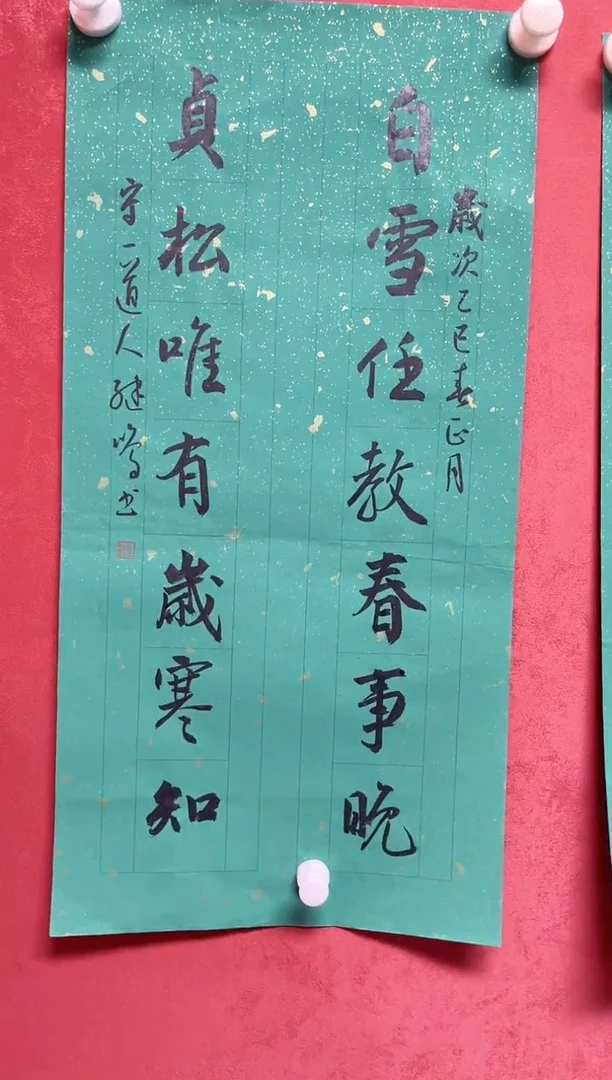 歲次乙巳春正月
白雪任教春事晚
貞松唯有歲寒知
守一道人鳴书